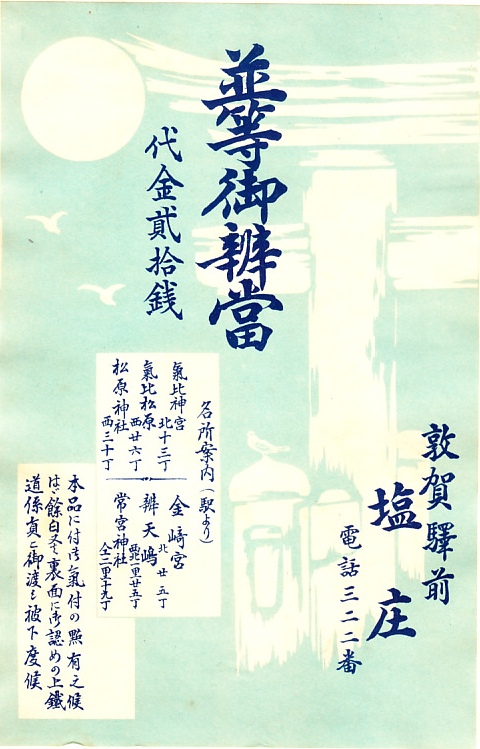 並等御辨當
代金貳拾銭
敦賀驛前
塩庄
電話三二二番
名所案内(駅より)
氣比神宮 北十三丁
氣比松原 西廿六丁
松原神社 西三十丁
金崎宮 北廿五丁
辨天嶋 西北一里廿五丁
常宮神社 仝二里十九丁
本品に付御氣付の點有之候
はゞ餘白又ハ裏面に御認めの上鐵
道係員に御渡し被下度候